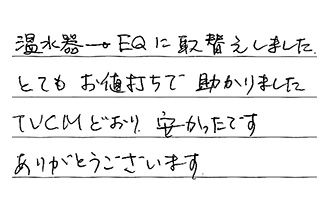 温水器→EQに取替えしました.
とても お値打ちで 助かりました
TVCMどおり 安かったです
ありがとうございます